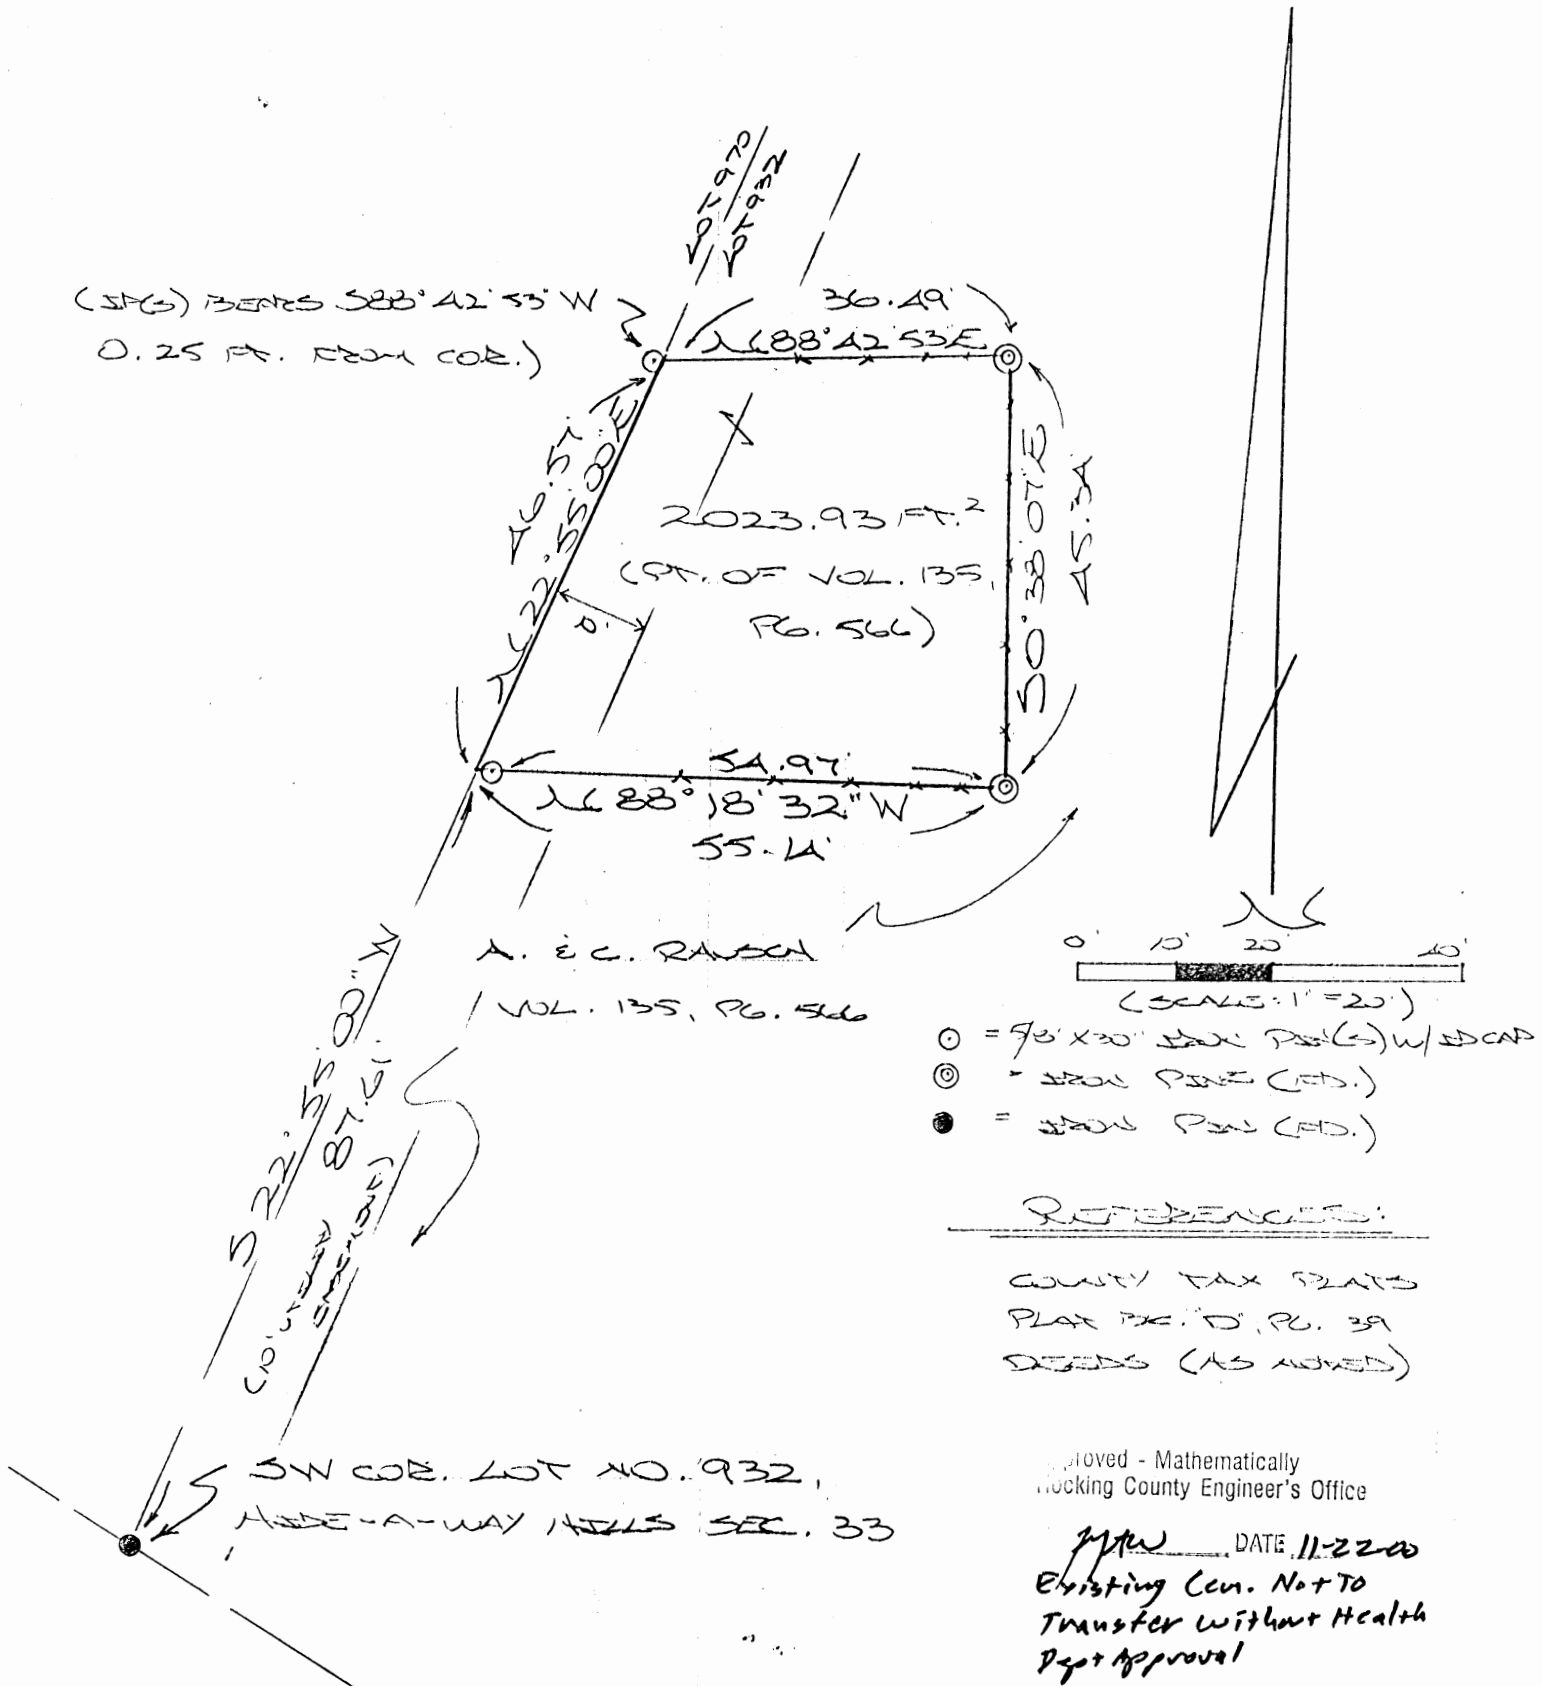 LOT 970
LOT 932
(IP(S) BEARS S88°42'53"W
0.25 FT. FROM COR.)
36.49'
N88°42'53"E
46.57'
N22°55'00"E
2023.93 FT.²
(PT. OF VOL. 135,
PG. 566)
S0°38'07"E
45.34'
54.97'
N88°18'32"W
55.14'
A. & C. RAUSCH
VOL. 135, PG. 566
S22°55'00"W
87.61'
(10' UTILITY
EASEMENT)
SW COR. LOT NO. 932,
HIDE-A-WAY HILLS SEC. 33
N
0' 10' 20' 40'
(SCALE: 1"=20')
= 5/8"X30" IRON PIN(S) W/ID CAP
= IRON PIPE (FD.)
= IRON PIN (FD.)
REFERENCES:
COUNTY TAX PLATS
PLAT BK. "D", PG. 39
DEEDS (AS NOTED)
Approved - Mathematically
Hocking County Engineer's Office
DATE 11-22-00
Existing Cem. Not To
Transfer Without Health
Dept Approval